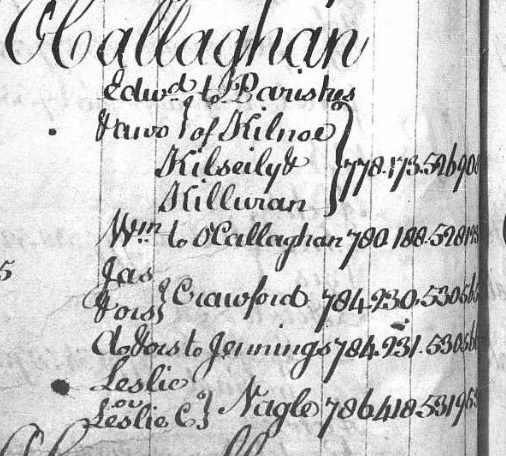 O'Callaghan
Edwd to Parishes
&anor of Kilnoe
Kilseily &
Killuran 778.173.526908
Wm to O'Callaghan 780.188.528193
5 Jas
&ors Crawford 784.930.530565
Do &ors to Jennings 784.931.530566
Leslie
or
Leslie C. Nagle 786.418.531953